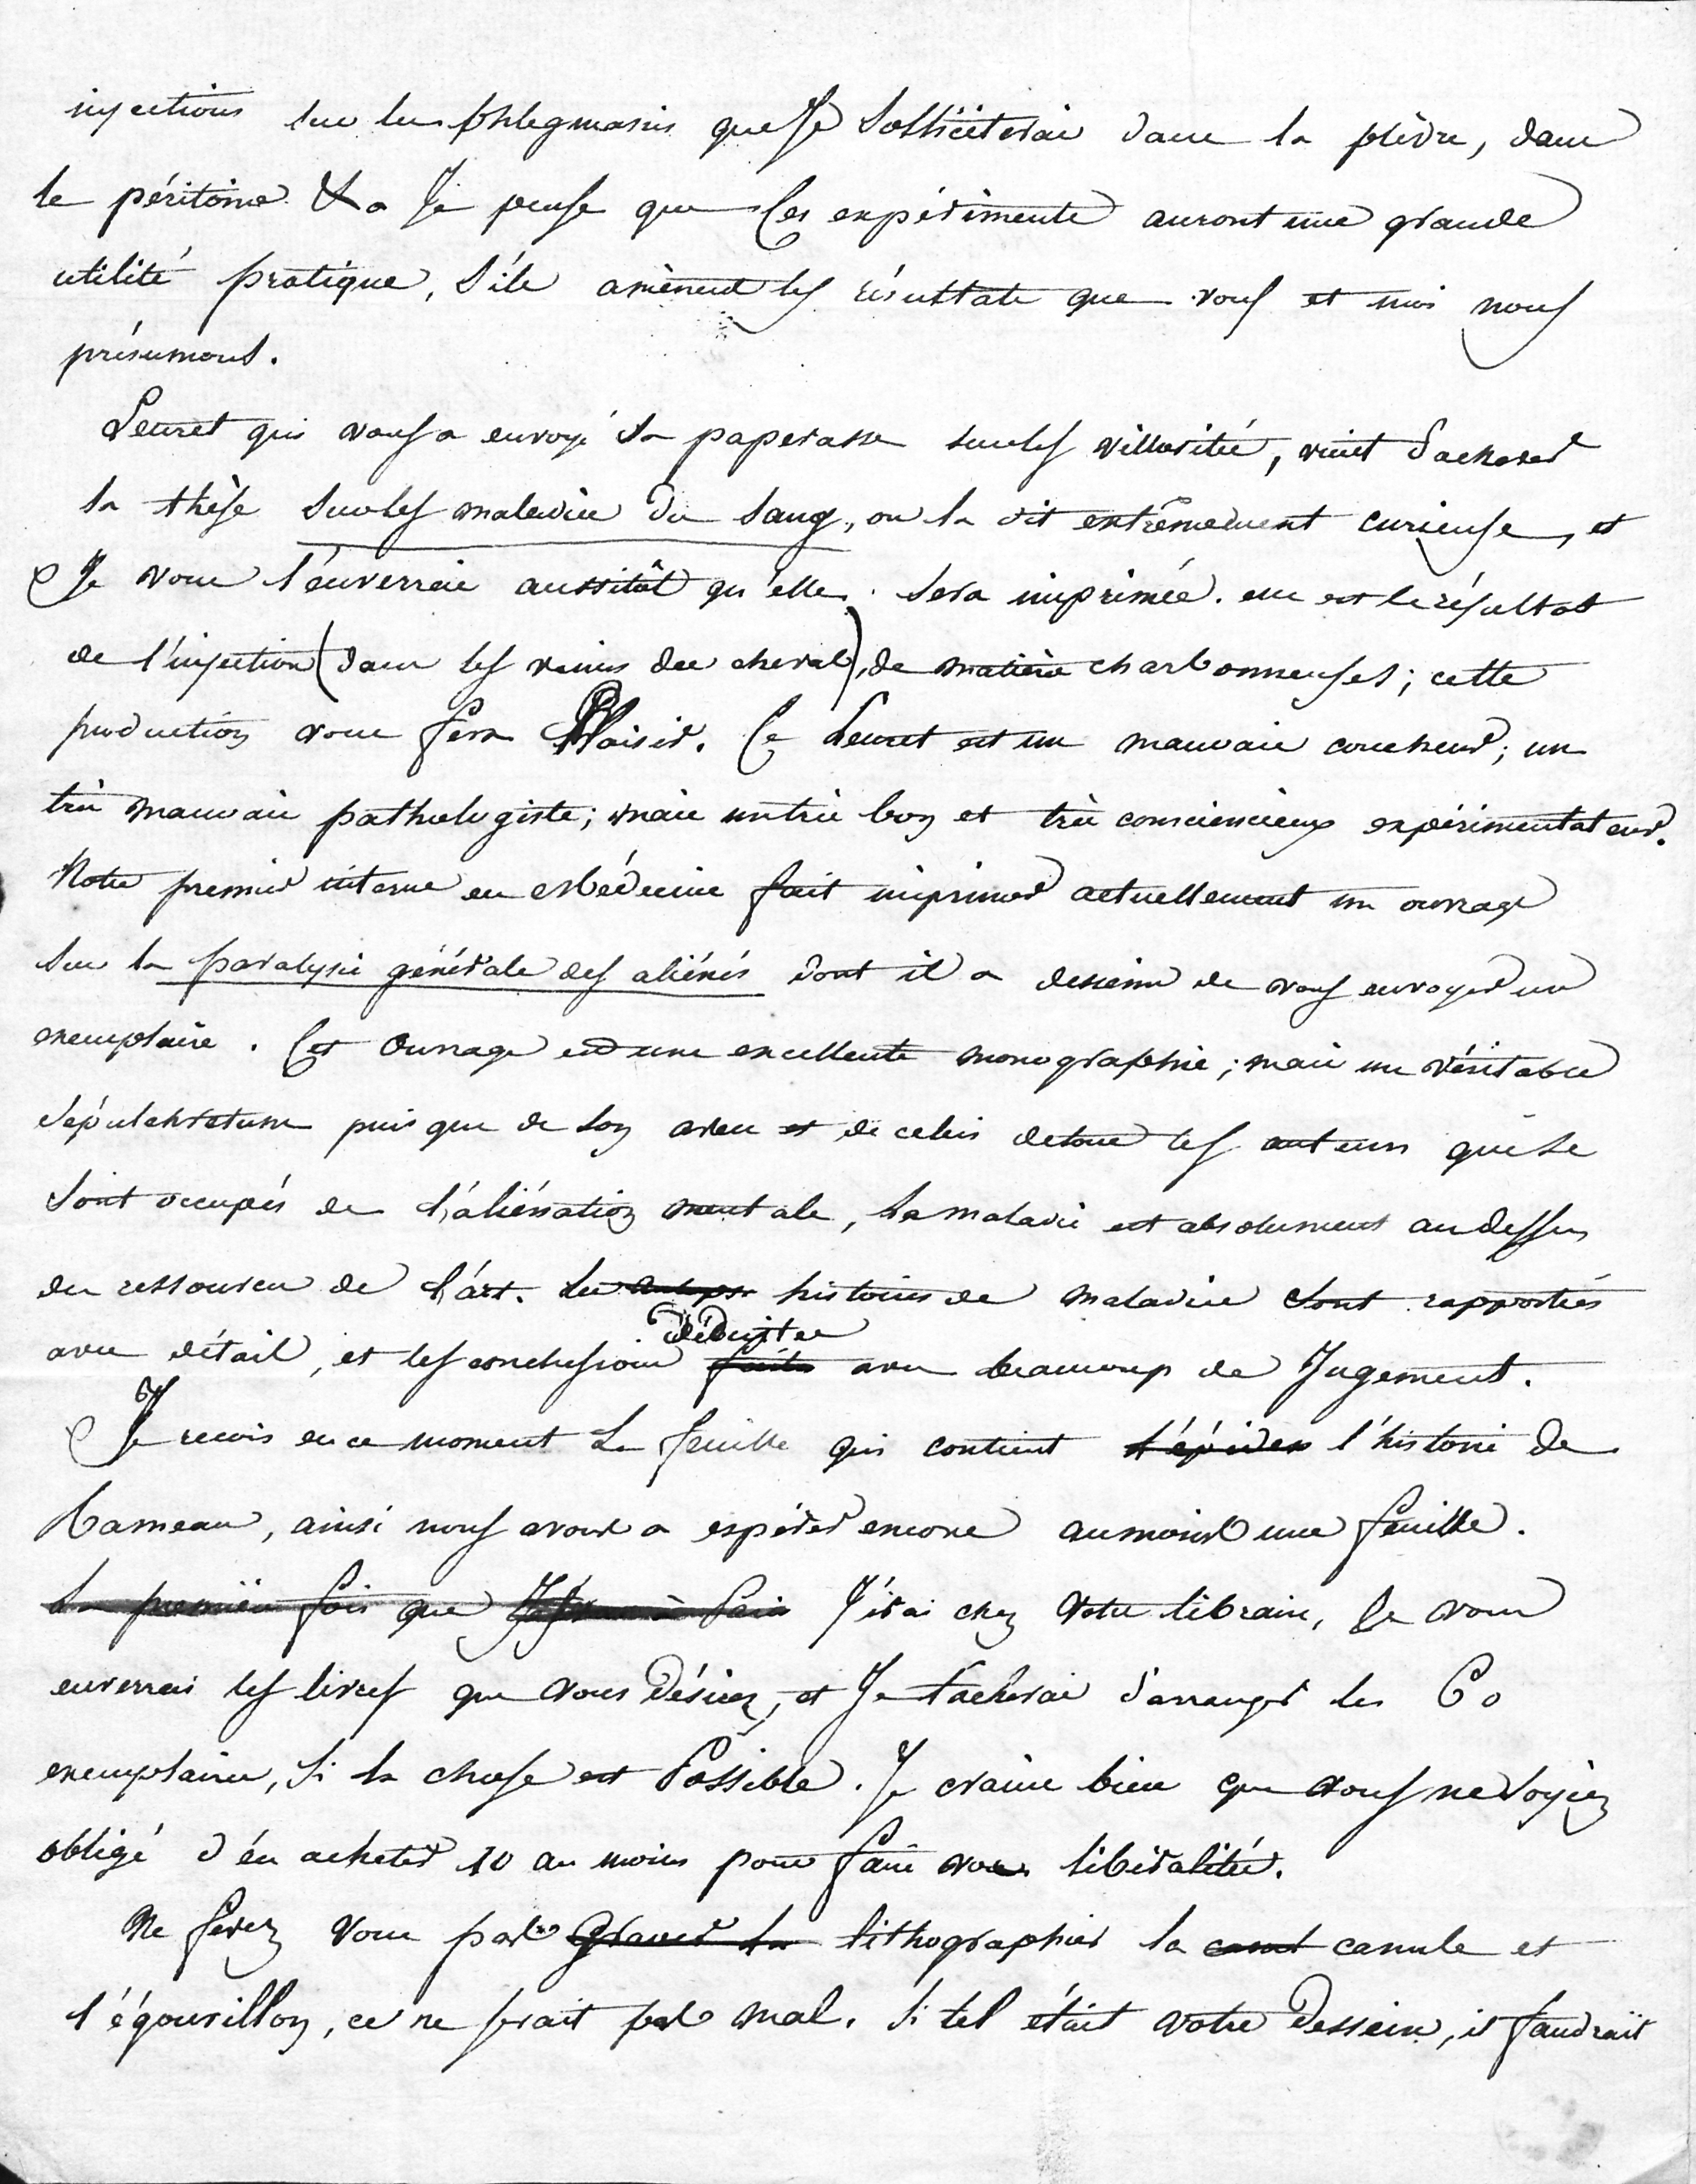 injections sur les phlegmasies que Je Solliciterai dans la plèvre, dans
le péritoine &a Je pense que Ces expériments auront une grande
utilité pratique, S'ils amènent les résultats que vous et moi nous
présumons.
Leuret qui vous a envoyé Sa paperasse sur les villosités, vient d'achever
Sa thèse Sur les maladies du Sang, on la dit extrêmement curieuse, et
Je vous l'enverrai aussitôt qu'elle Sera imprimée. elle est le résultat
de l'injection (dans les veines des cheval), de matière charbonneuses; cette
production vous fera Plaisir. Ce Leuret est un mauvais coucheur; un
très mauvais pathologiste; mais un très bon et très consciencieux expérimentateur.
Notre premier interne en Médecine fait imprimer actuellement un ouvrage
Sur la paralysie générale des aliénés dont il a dessein de vous envoyer un
exemplaire. Cet Ouvrage est une excellente monographie; mais un véritable
Sépulchretum puis que de Son aveu et de celui de tous les auteurs qui Se
Sont occupés de L'aliénation mentale, La maladie est absolument au dessus
des ressources de L'art. Les histoires de maladies Sont rapportées
avec détail, et les conclusions déduites avec beaucoup de Jugement.
Je reçois en ce moment La feuille qui contient l'histoire de
Rameau, ainsi nous avons a espérer encore au moins une feuille.
La première fois que J'irai chez Votre libraire, Je vous
enverrai les livres que Vous Désirez, et Je tacherai d'arranger les 60
exemplaires, Si la chose est Possible. Je crains bien que Vous ne Soyiez
obligé d'en acheter 10 au moins pour faire vos libéralités.
Ne ferez Vous pas Graver La lithographier la canule et
l'égouvillon, ce ne serait pas mal. Si tel était Votre Dessein, il faudrait